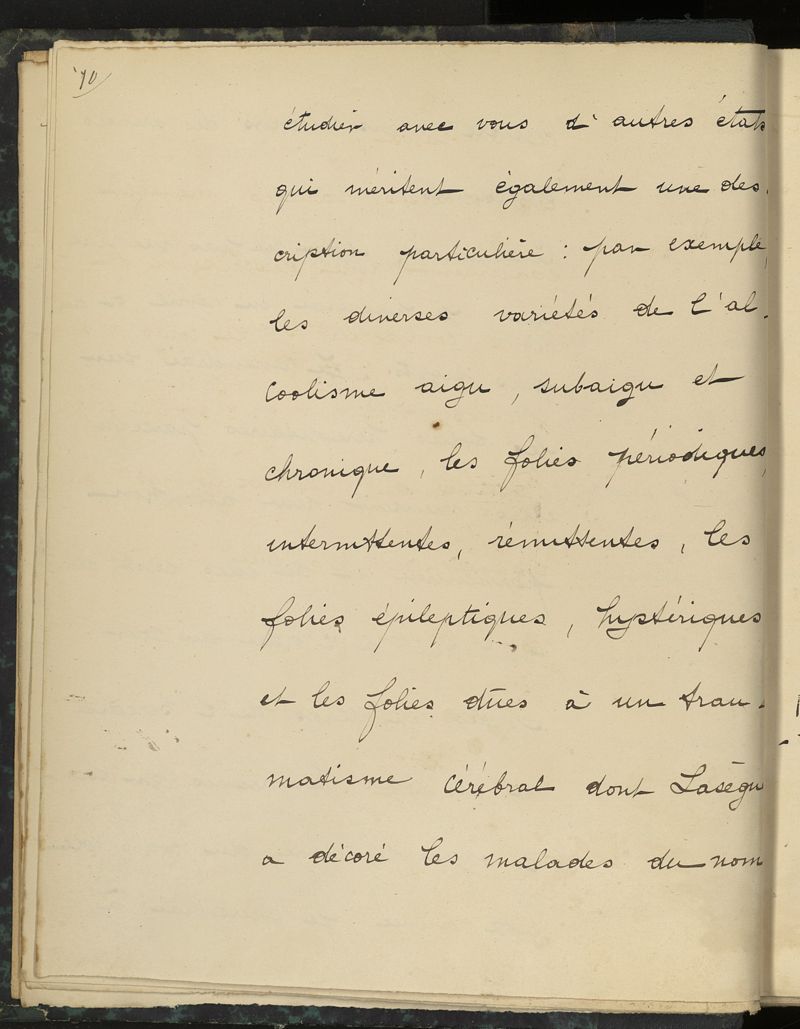 70
étudier avec vous d'autres états
qui méritent également une des-
cription particulière : par exemple,
les diverses variétés de l'al-
coolisme aigu, subaigu et
chronique, les folies périodiques,
intermittentes, rémittentes, les
folies épileptiques, hystériques
et les folies dûes à un trau-
matisme cérébral dont Lasègu
a décoré les malades du nom